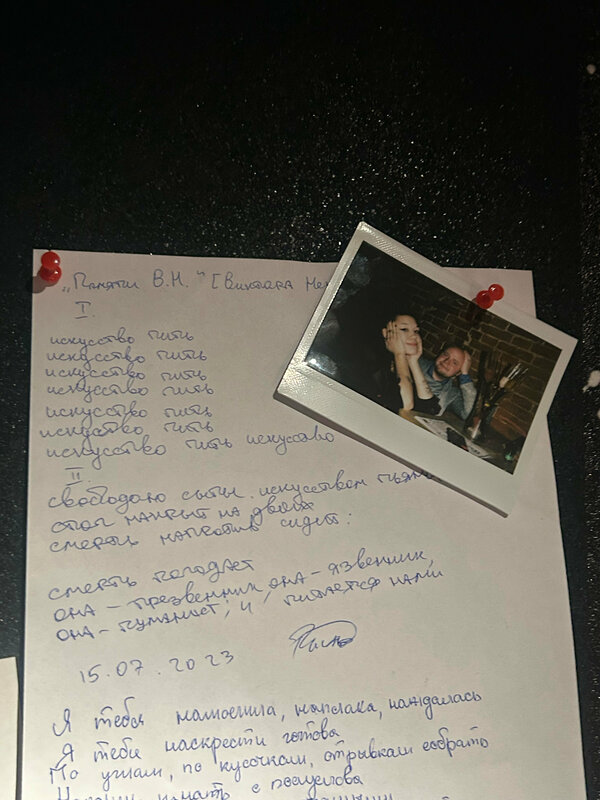 „Памяти В.Н." [Виктора Не
I.
искусство пить
искусство пить
искусство пить
искусство пить
искусство пить
искусство пить
искусство пить искусство
II
свободою сыты искусством пьяны
стол накрыт на двоих
смерть напротив сидит:
смерть голодает
она – трезвенник, она – язвенник,
она – гуманист, и питается нами
15.07.2023
Я тебя намолила, наждалась
Я тебя наскрести готова
По углам, по кусочкам, отрывкам собрать
с полуслова